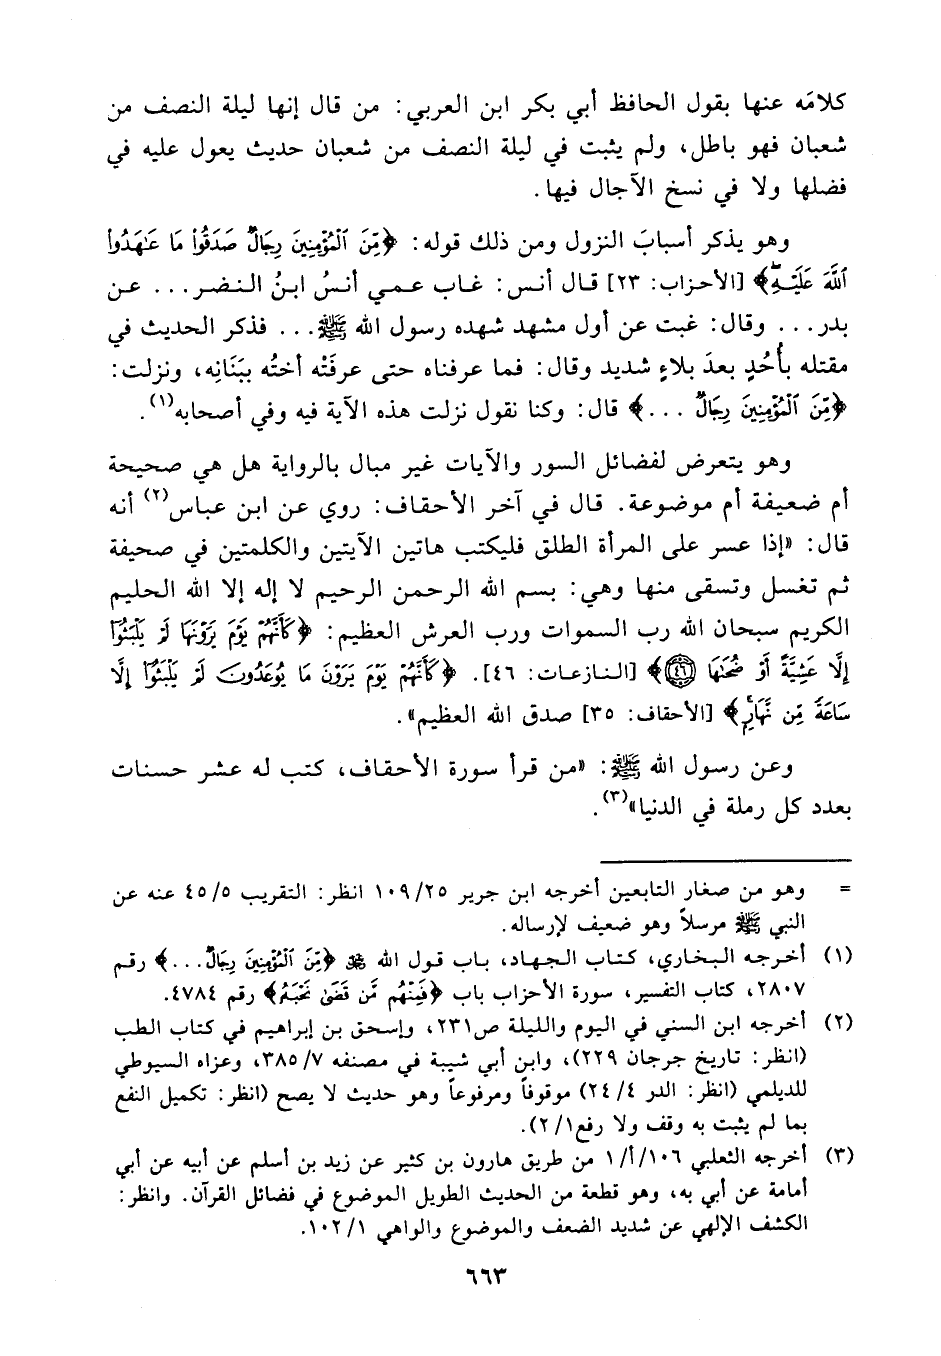 كلامَه عنها بقول الحافظ أبي بكر ابن العربي: من قال إنها ليلة النصف من
شعبان فهو باطل، ولم يثبت في ليلة النصف من شعبان حديث يعول عليه في
فضلها ولا في نسخ الآجال فيها.
وهو يذكر أسبابَ النزول ومن ذلك قوله: ﴿مِّنَ ٱلْمُؤْمِنِينَ رِجَالٌ صَدَقُوا۟ مَا عَـٰهَدُوا۟
ٱللَّهَ عَلَيْهِ﴾ [الأحزاب: ٢٣] قال أنس: غاب عمي أنسُ ابنُ النضر... عن
بدر... وقال: غبت عن أول مشهد شهده رسول الله ﷺ... فذكر الحديث في
مقتله بأُحُدٍ بعدَ بلاءٍ شديد وقال: فما عرفناه حتى عرفَتْه أختُه ببَنَانِه، ونزلت:
﴿مِّنَ ٱلْمُؤْمِنِينَ رِجَالٌ ...﴾ قال: وكنا نقول نزلت هذه الآية فيه وفي أصحابه(١).
وهو يتعرض لفضائل السور والآيات غير مبال بالرواية هل هي صحيحة
أم ضعيفة أم موضوعة. قال في آخر الأحقاف: روي عن ابن عباس(٢) أنه
قال: «إذا عسر على المرأة الطلق فليكتب هاتين الآيتين والكلمتين في صحيفة
ثم تغسل وتسقى منها وهي: بسم الله الرحمن الرحيم لا إله إلا الله الحليم
الكريم سبحان الله رب السموات ورب العرش العظيم: ﴿كَأَنَّهُمْ يَوْمَ يَرَوْنَهَا لَمْ يَلْبَثُوٓا۟
إِلَّا عَشِيَّةً أَوْ ضُحَىٰهَا ﴿٤٦﴾﴾ [النازعات: ٤٦]. ﴿كَأَنَّهُمْ يَوْمَ يَرَوْنَ مَا يُوعَدُونَ لَمْ يَلْبَثُوٓا۟ إِلَّا
سَاعَةً مِّن نَّهَارٍۭ﴾ [الأحقاف: ٣٥] صدق الله العظيم».
وعن رسول الله ﷺ: «من قرأ سورة الأحقاف، كتب له عشر حسنات
بعدد كل رملة في الدنيا»(٣).
= وهو من صغار التابعين أخرجه ابن جرير ١٠٩/٢٥ انظر: التقريب ٤٥/٥ عنه عن
النبي ﷺ مرسلاً وهو ضعيف لإرساله.
(١) أخرجه البخاري، كتاب الجهاد، باب قول الله ﷻ ﴿مِّنَ ٱلْمُؤْمِنِينَ رِجَالٌ...﴾ رقم
٢٨٠٧، كتاب التفسير، سورة الأحزاب باب ﴿فَمِنْهُم مَّن قَضَىٰ نَحْبَهُ﴾ رقم ٤٧٨٤.
(٢) أخرجه ابن السني في اليوم والليلة ص٢٣١، وإسحق بن إبراهيم في كتاب الطب
(انظر: تاريخ جرجان ٢٢٩)، وابن أبي شيبة في مصنفه ٣٨٥/٧، وعزاه السيوطي
للديلمي (انظر: الدر ٢٤/٤) موقوفاً ومرفوعاً وهو حديث لا يصح (انظر: تكميل النفع
بما لم يثبت به وقف ولا رفع ٢/١).
(٣) أخرجه الثعلبي ١٠٦/أ/١ من طريق هارون بن كثير عن زيد بن أسلم عن أبيه عن أبي
أمامة عن أبي به، وهو قطعة من الحديث الطويل الموضوع في فضائل القرآن. وانظر:
الكشف الإلهي عن شديد الضعف والموضوع والواهي ١٠٢/١.
٦٦٣